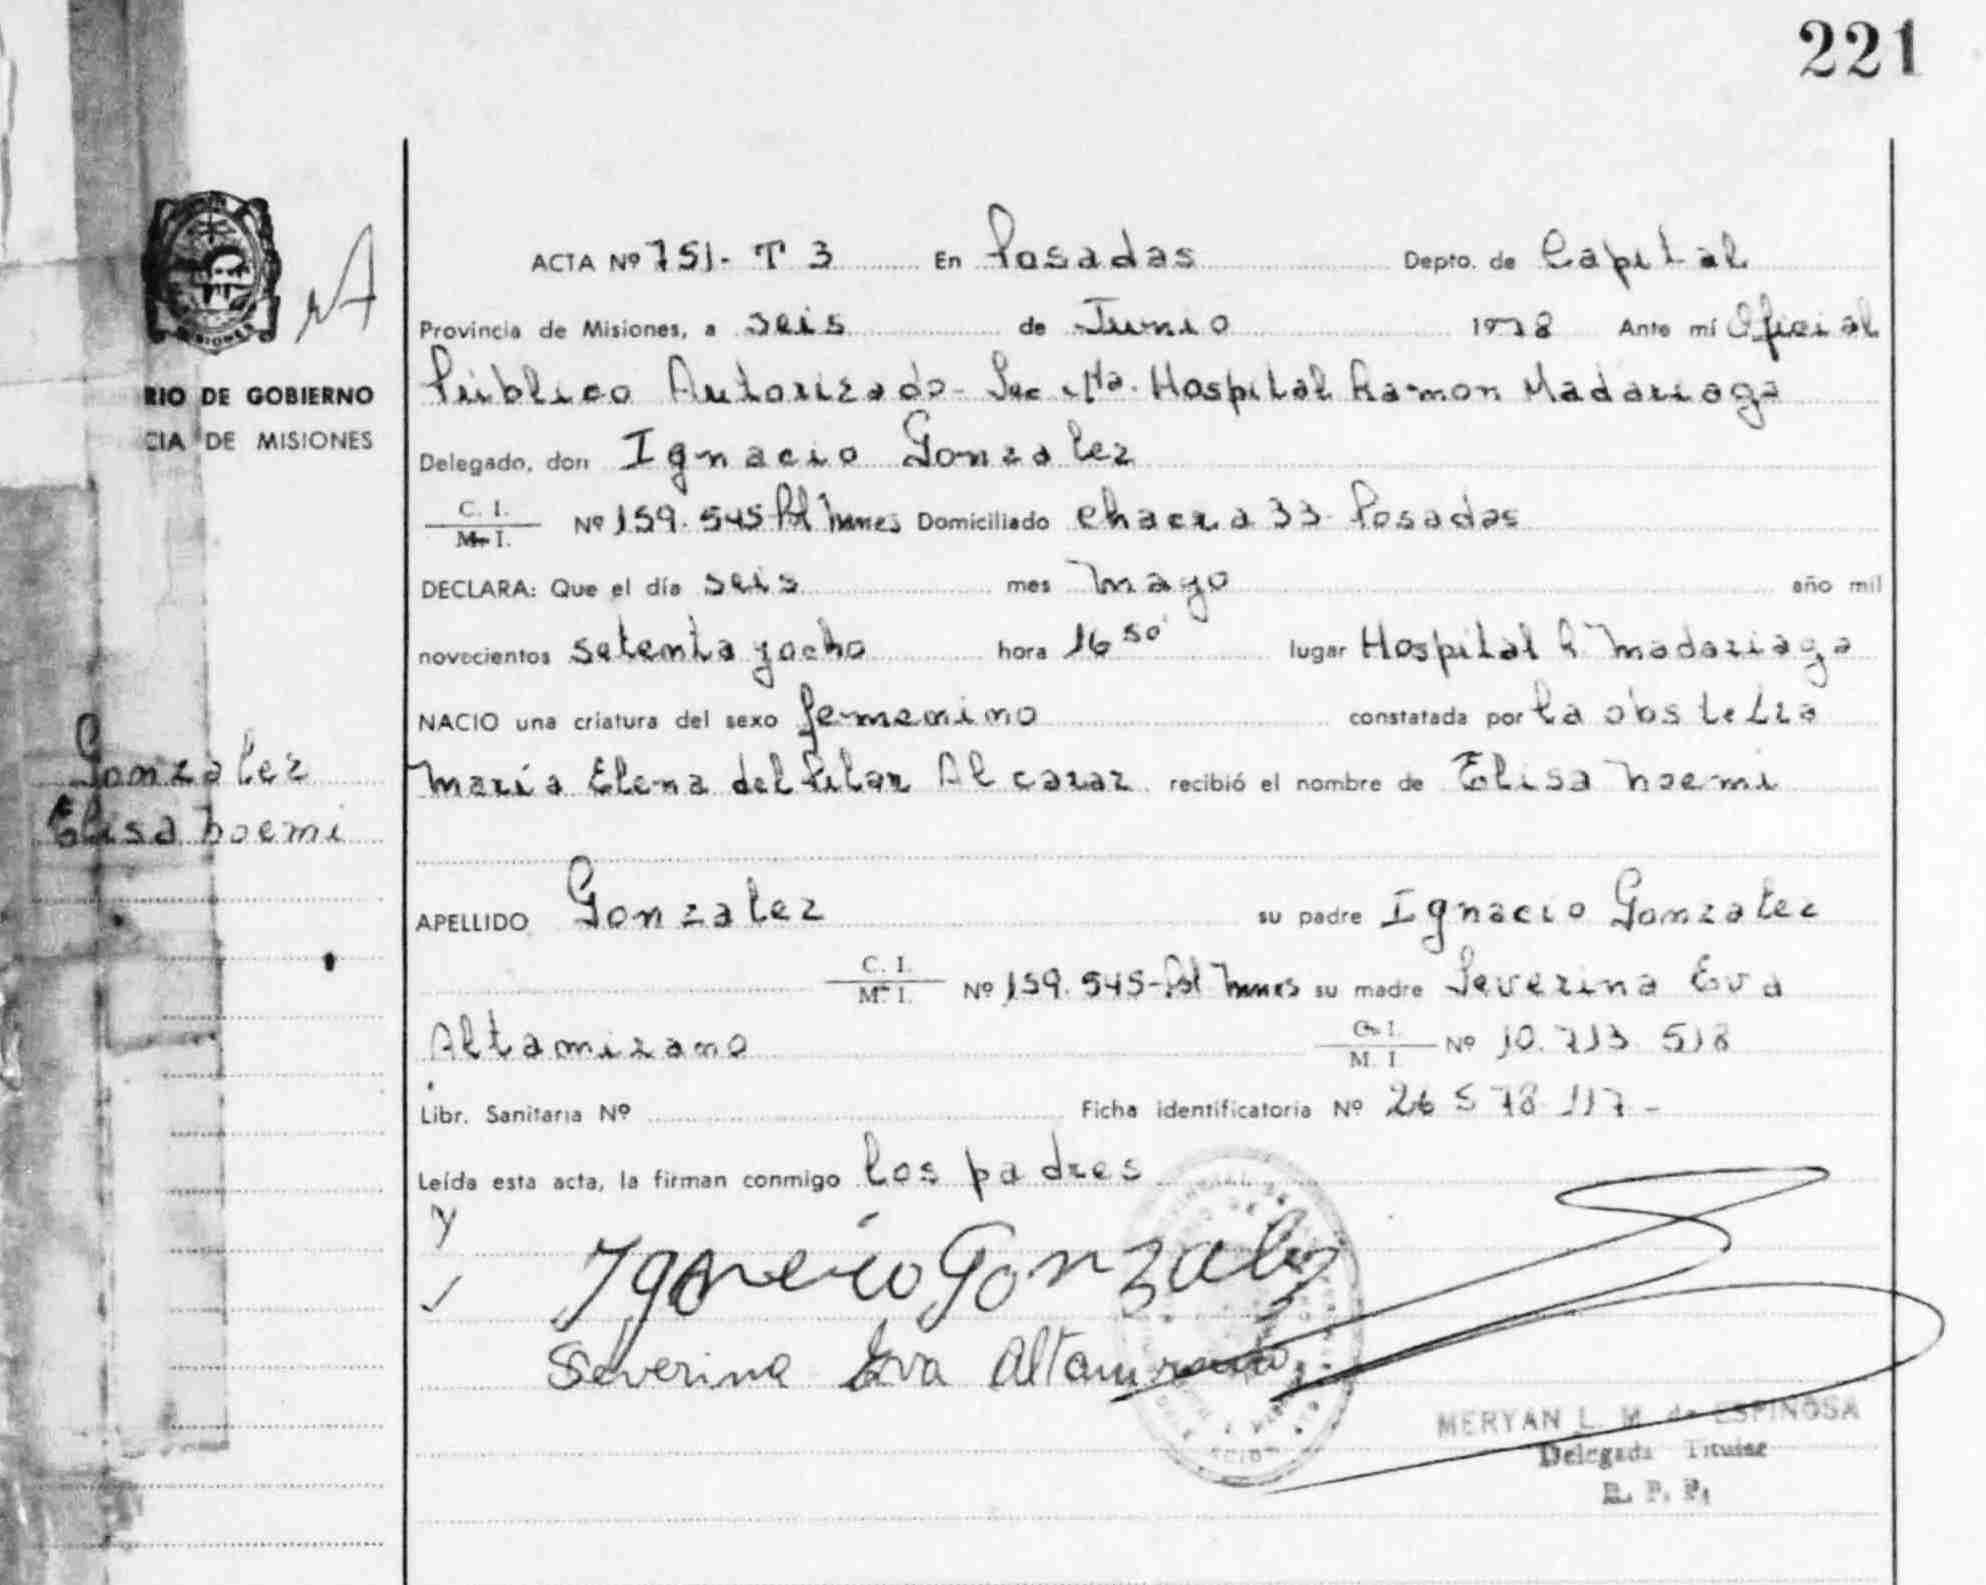 221
ACTA Nº 751- T 3 En Posadas Depto. de Capital
Provincia de Misiones, a seis de Junio 1978 Ante mí Oficial
RIO DE GOBIERNO
Público Autorizado- Sec. Hospital Ramon Madariaga
CIA DE MISIONES
Delegado, don Ignacio Gonzalez
C. I.
M. I.
Nº 159.545 Pol Mnes Domiciliado Chacra 33- Posadas
DECLARA: Que el día seis mes Mayo año mil
novecientos setenta y ocho hora 16 50' lugar Hospital R. Madariaga
NACIO una criatura del sexo femenino constatada por la obstetra
Maria Elena del Pilar Alcaraz recibió el nombre de Elisa Noemi
Gonzalez
Elisa Noemi
APELLIDO Gonzalez su padre Ignacio Gonzalez
C. I.
M. I.
Nº 159.545-Pol Mnes su madre Severina Eva
Altamirano
C. I.
M. I.
Nº 10.713.518
Libr. Sanitaria Nº Ficha identificatoria Nº 26 578 117-
Leída esta acta, la firman conmigo los padres
Ignacio Gonzalez
Severina Eva Altamirano
MERYAN L. M. de ESPINOSA
Delegada Titular
R. P. P.